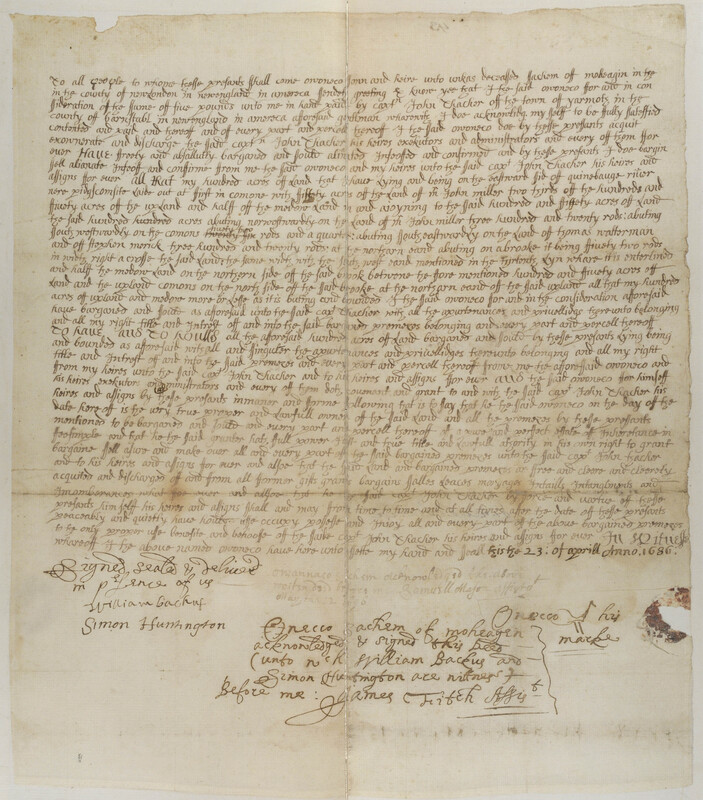 To all people to whome these presants shall come owoneco sonn and heire unto unkas deceased sachem off moheagin in the
in the county of newlondon in newengland in amereca sendeth greeting & know yee that I the said owoneco for and in con
sideration of the sume of five pounds unto me in hand paid by capt John Thacher off the town off yarmoth in the
county off barnstabl in newengland in amereca aforesaid I doe acknowledg my self to be fully satesfied
contented and paid and thereof and of every part and percell thereoff I the said owoneco doe by these presants acquit
exonnerate and discharge the said capt John Thacher his heires exekutors and administrators and every of them for
ever Have freely and absallutly bargained and sould alinated Infeoffed and confirmed and by these presents I doe bargin
sell alianate Infeoff and confirme from me the said owoneco and my heires unto the said capt John Thacher his heires and
assigns for ever all that my hundred acres off Land that I have Lying and being on the eastward side off quinebauge river
nere Lyeth at first in comone with fiffety acres of the Land of John miller two thyrds off the hundreds and
fiuety acres off the upland and halff off the medow Land and aioyning to the said hundred and fiffety acres of Land
the said hundred hundred acres abuting norwestwardly on the Land off John miller three hundred and twenty rods: abuting
south westwardly on the comons rods and a quarter: abuting south eastwardly on the Land off thomas waterman
and off stephen merick three hundred and twenty rods at the northern eand abuting on a brooke it being fiuety two rods
in width right a crosse the said Land the same width with the south west eand mentioned in the Lyn where it is enterlined
and halff the medow Land on the northern side off the said brook betwene the fore mentioned hundred and fiuety acres off
Land and the upland comons on the north side off the said brooke at the northarn eand off the said upland all that my hundred
acres of upland and medow more or Lesse as it is buting and bounded I the said owoneco for and in the consideration afforesaid
have bargained and sould as afforesaid unto the said capt Thacher with all the apurtenances and privelidge thereunto belonging
and all my right title and Intrest off and into the said bargained premeses belonging and every part and percell thereoff
TO HAVE AND TO HOULD all the afforesaid hundred acres of Land bargand and sould by these presants Lying being
and bounded as afforesaid with all and singuler the apurtenances and privelidges thereunto belonging and all my right
title and Intrest off and into the said premeses and every part and percell thereoff from me the afforesaid owoneco and
from my heires unto the said capt John Thacher and to his heires and assigns for ever AND the said owoneco for himself
his heires exekutor administrators and every of them doe covenant and grant to and with the said capt John Thacher his
heires and assigns by these presants in maner and forme following that is to say that he the said owoneco on the day of the
date here off is the very true proper and Lawfull owner of the said Land and all the premeses by these presants
mentioned to be bargained and sould and every part and percell thereoff in a pure and perfect estate of Inheritance in
feesimple and that he the said granter hath full power just and true title and Lawfull athority in his own right to grant
bargaine sell asure and make over all and every part of the said bargained premeses unto the said capt John thacher
and to his heires and assigns for ever and allso that the said Land and bargained premeses ar free and cleere and cleerely
acquited and discharged of and from all former gifts grants bargains salles Leaces morgages Intails Intanglments and
Incomberances what so ever and allsoe that he the said capt John Thacher by force and vertue of these
presants himself his heires and assigns shall and may from time to time and at all times after the date off these presants
peaceably and quietly have hould use occupy possese and Injoy all and every part of the above bargained premeses
to the only proper use beneffite and behoofe off the said capt John Thacher his heires and assigns for ever In Witness
whereoff I the above named owoneco have here unto sette my hand and seall this the 23: of aprill Anno. 1686.
Signed, Sealed & delivered
in presence of us
William backus
Simon Huntington
Onecco his
marke
Onecco Sachem of moheagen
acknowledged & signed this deed
unto wch William Backus and
Simon Huntington are witness
Before me: James Fitch Assist